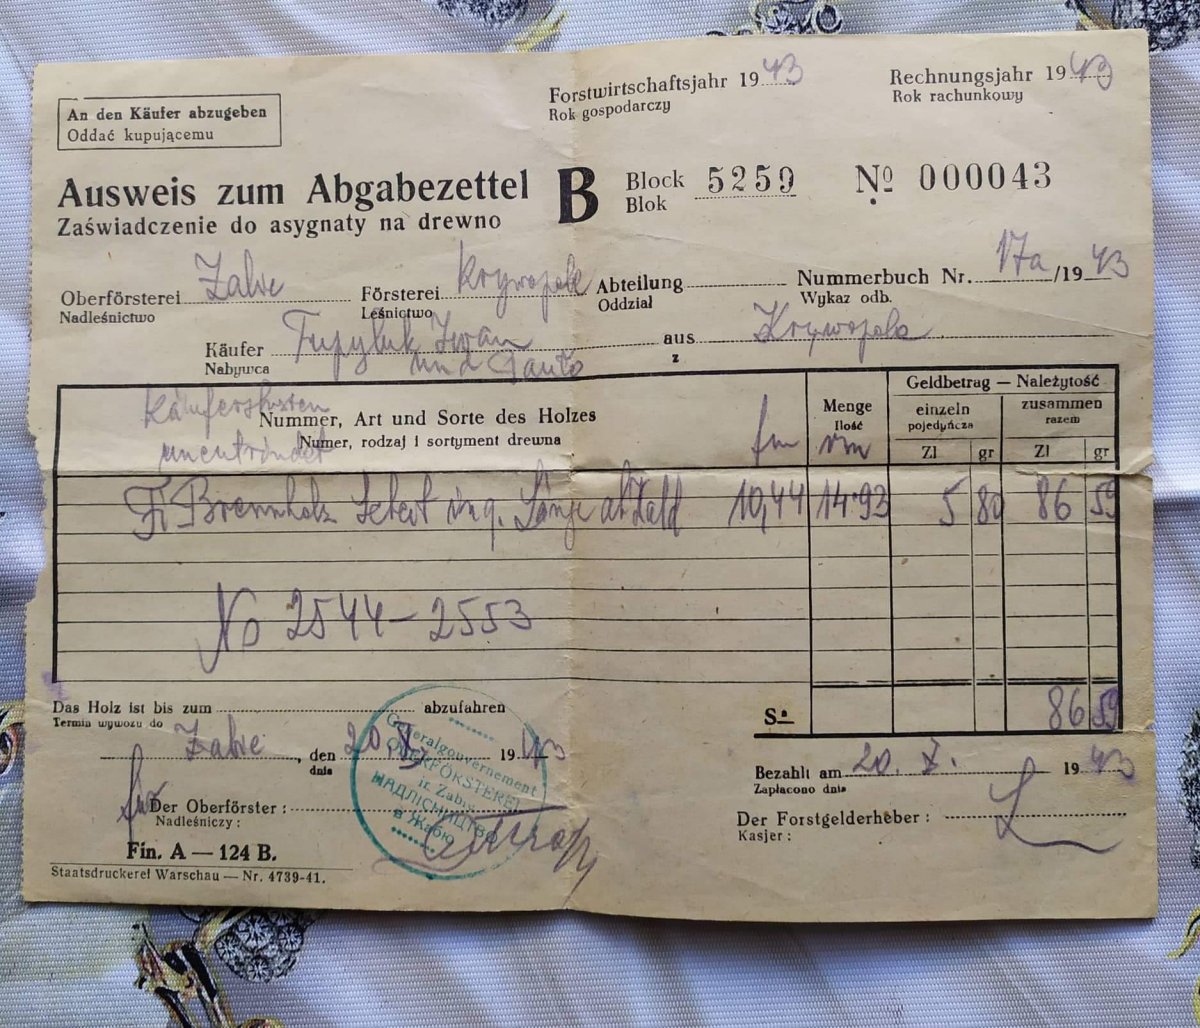 An den Käufer abzugeben
Oddać kupującemu
Forstwirtschaftsjahr 1943
Rok gospodarczy
Rechnungsjahr 1943
Rok rachunkowy
Ausweis zum Abgabezettel B
Zaświadczenie do asygnaty na drewno
Block 5259 Nº 000043
Blok
Oberförsterei Zabie Försterei Krywopole Abteilung Nummerbuch Nr. 17a/1943
Nadleśnictwo Leśnictwo Oddział Wykaz odb.
Käufer Iwan aus Krywopole
Nabywca und z
Nummer, Art und Sorte des Holzes
Numer, rodzaj i sortyment drewna
unentrindet
fm
Menge
Ilość
rm
Geldbetrag — Należytość
einzeln zusammen
pojedyńcza razem
Zl gr Zl gr
Fi Brennholz 10,44 14.93 5 80 86 59
No 2544-2553
Sª 86 59
Das Holz ist bis zum abzufahren
Termin wywozu do
Zabie, den 20. X. 1943
dnia
für Der Oberförster:
Nadleśniczy:
Generalgouvernement
OBERFÖRSTEREI
in Zabie
НАДЛІСНИЦТВО
в Жабю
Bezahlt am 20. X. 1943
Zapłacono dnia
Der Forstgelderheber:
Kasjer:
Fin. A — 124 B.
Staatsdruckerei Warschau — Nr. 4739-41.